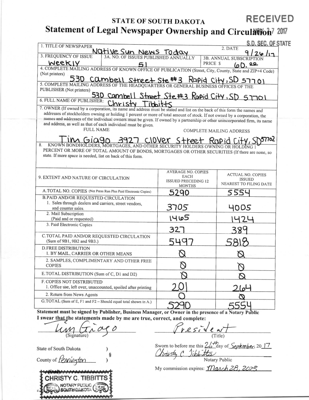 STATE OF SOUTH DAKOTA
RECEIVED
Statement of Legal Newspaper Ownership and Circulation
2017
S.D. SEC. OF STATE
1. TITLE OF NEWSPAPER
Native Sun News Today
2. DATE
9/26/17
3. FREQUENCY OF ISSUE
Weekly
3A. NO. OF ISSUES PUBLISHED ANNUALLY
51
3B. ANNUAL SUBSCRIPTION PRICE $ 60.00
4. COMPLETE MAILING ADDRESS OF KNOWN OFFICE OF PUBLICATION (Street, City, County, State and ZIP+4 Code) (Not printer)
530 Cambell Street Ste #3 Rapid City, SD 57701
5. COMPLETE MAILING ADDRESS OF THE HEADQUARTERS OR GENERAL BUSINESS OFFICES OF THE PUBLISHER (Not printer)
530 Cambell Street Ste #3 Rapid City, SD 57701
6. FULL NAME OF PUBLISHER:
Christy Tibbitts
7. OWNER (If owned by a corporation, its name and address must be stated and
FULL NAME
COMPLETE MAILING ADDRESS
Tim Giago 3927 Clover Street Rapid City, SD 57702
8. KNOWN BONDHOLDERS, MORTGAGEES, AND OTHER SECURITY HOLDERS OWNING OR HOLDING 1 PERCENT OR MORE OF TOTAL AMOUNT OF BONDS, MORTGAGES OR OTHER SECURITIES (If there are none, so state. If more space is needed, list on back of this form.
9. EXTENT AND NATURE OF CIRCULATION
AVERAGE NO. COPIES EACH ISSUED PRECEDING 12 MONTHS
ACTUAL NO. COPIES ISSUED NEAREST TO FILING DATE
A. TOTAL NO. COPIES
5290
5554
B. PAID AND/OR REQUESTED CIRCULATION
1. Sales through dealers and carriers, street vendors, and counter sales
3705
4005
2. Mail Subscription (Paid and or requested)
1465
1424
3. Paid Electronic Copies
327
389
C. TOTAL PAID AND/OR REQUESTED CIRCULATION (Sum of 9B1, 9B2 and 9B3.)
5497
5818
D. FREE DISTRIBUTION
1. BY MAIL, CARRIER OR OTHER MEANS
2. SAMPLES, COMPLIMENTARY AND OTHER FREE COPIES
E. TOTAL DISTRIBUTION (Sum of C, D1 and D2)
F. COPIES NOT DISTRIBUTED
1. Office use, left over, unaccounted, spoiled after printing
201
264
2. Return from News Agents
G. TOTAL (Sum of E, F1 and F2 - Should equal total shown in A.)
5290
5554
Statement must be signed by Publisher, Business Manager, or Owner in the presence of a Notary Public
I swear that the statements made by me are true, correct, and complete:
Tim Giago
President
(Signature)
(Title)
State of South Dakota )
Sworn to before me this 26th day of September, 2017
) §
Christy C Tibbitts
County of Pennington )
Notary Public
My commission expires: March 28, 2023
CHRISTY C. TIBBITTS
NOTARY PUBLIC
SOUTH DAKOTA